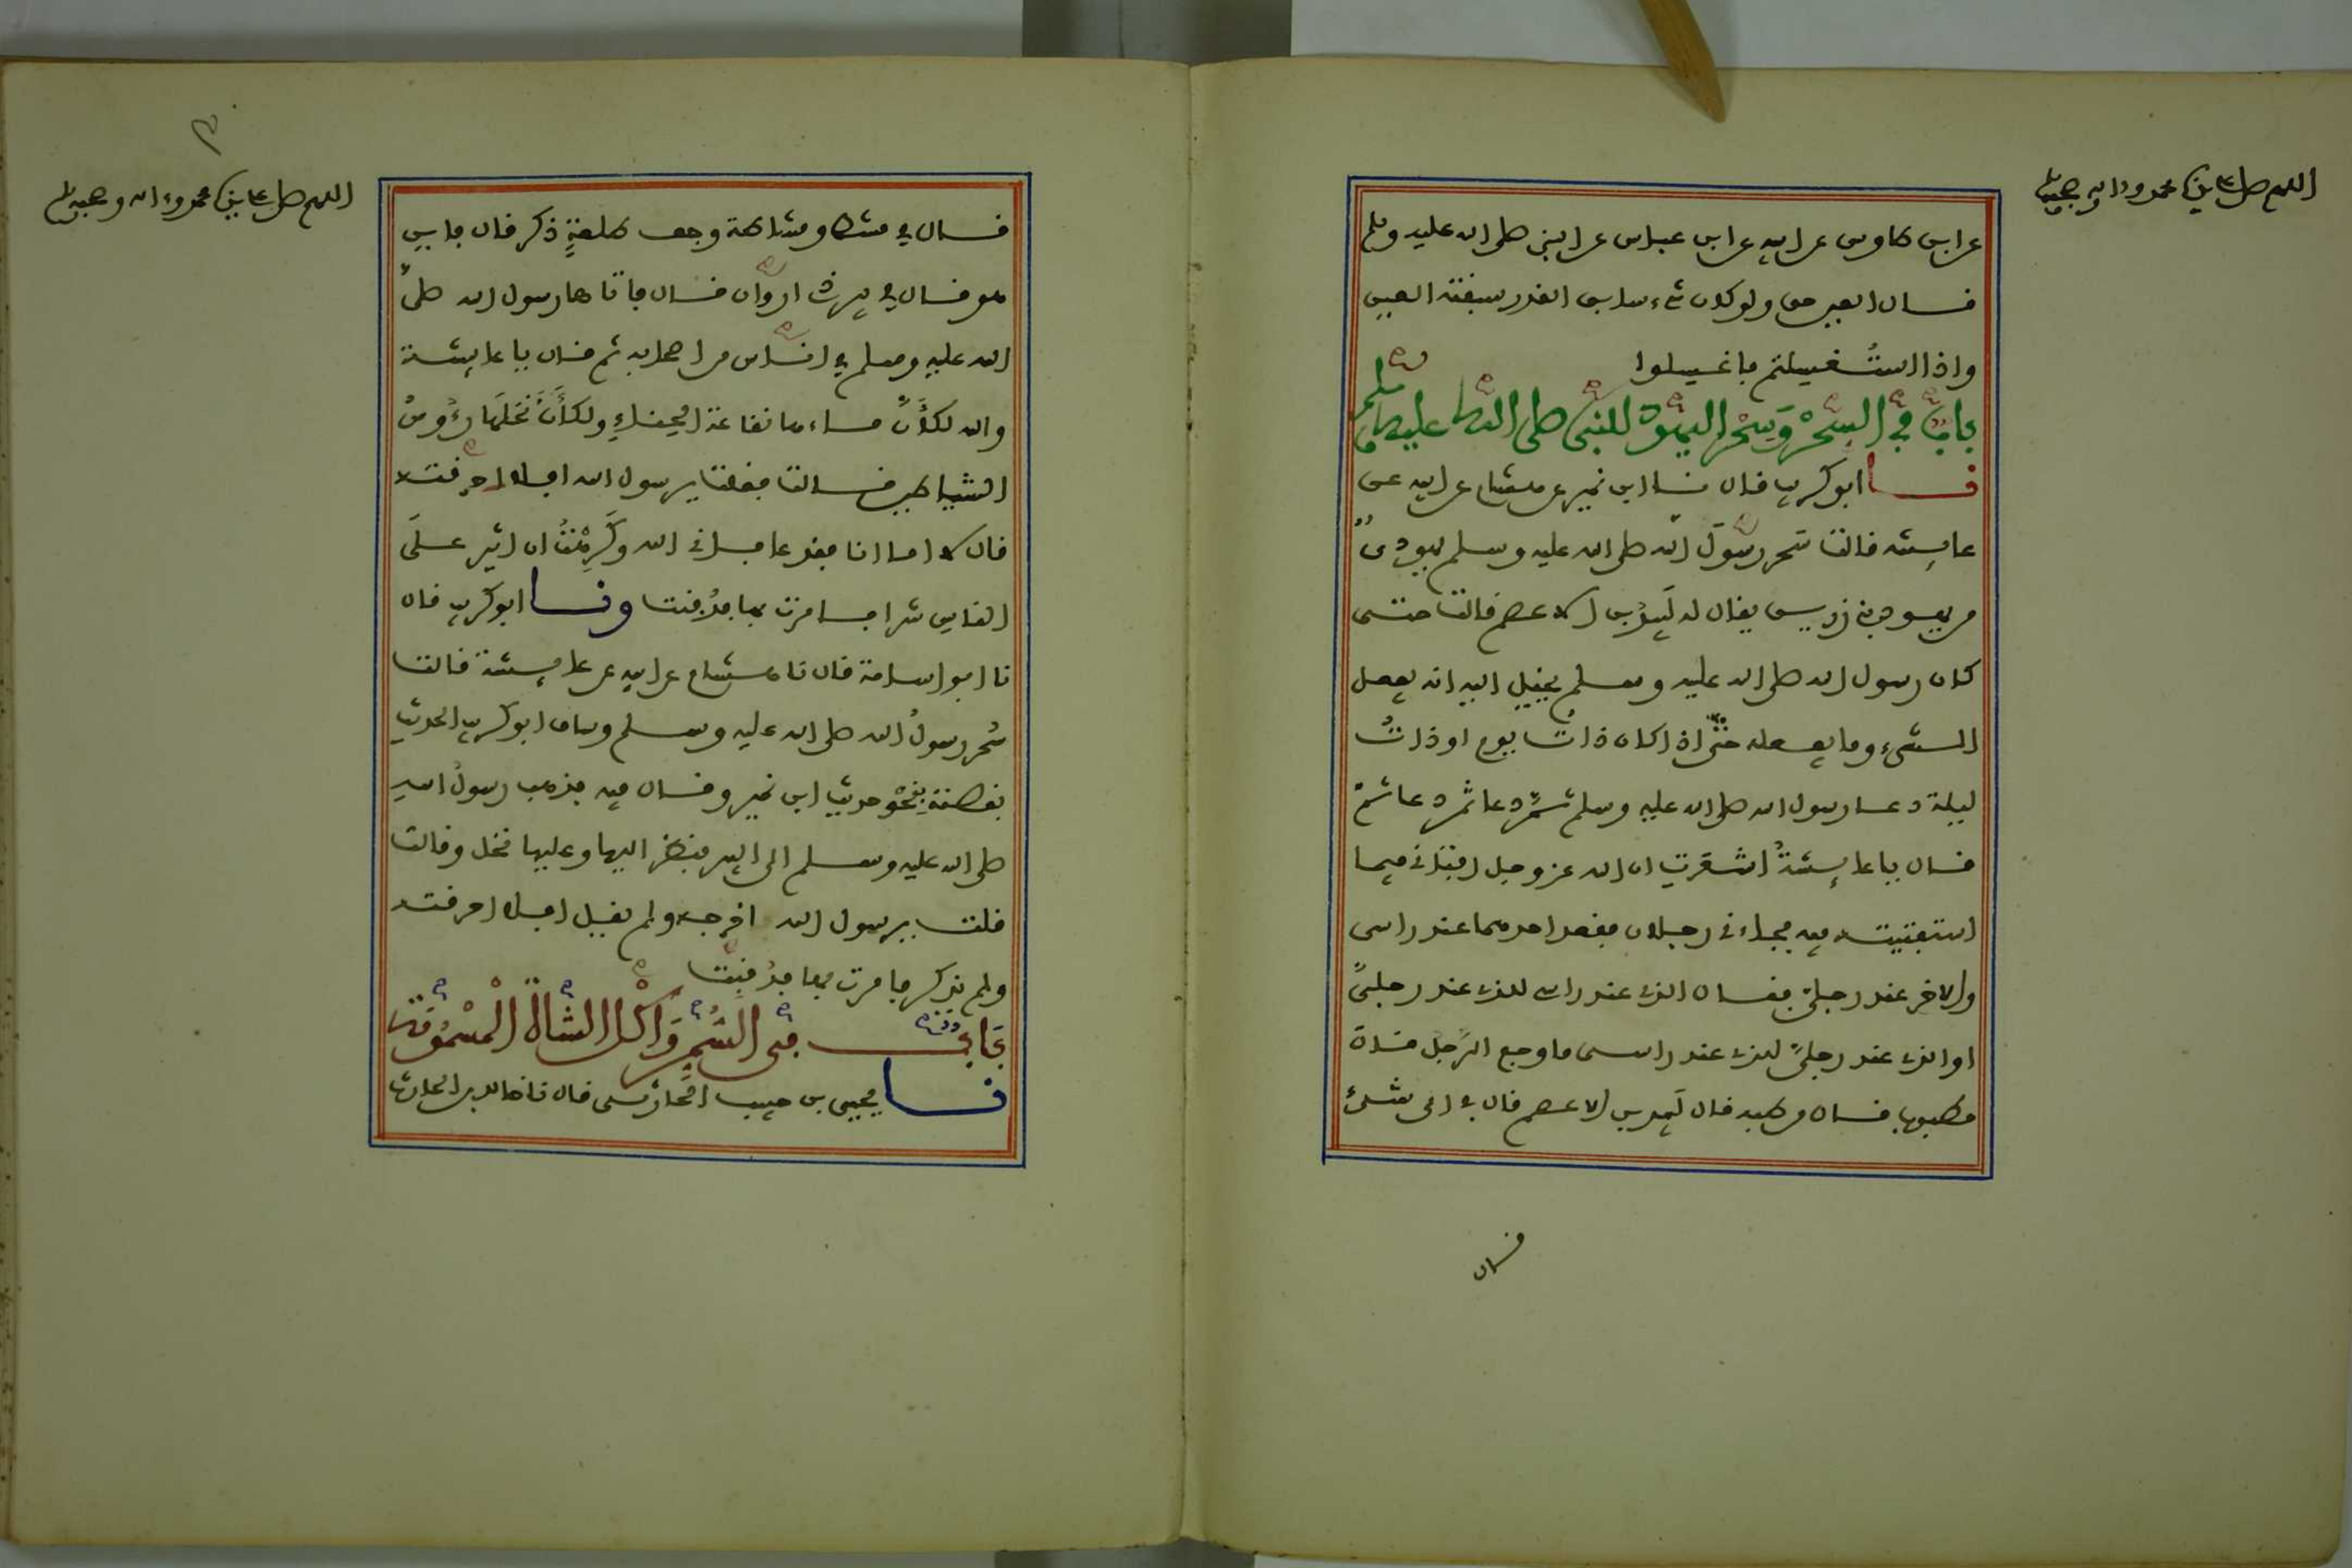 اللهم صل على سيدنا محمد وءاله وصحبه وسلم
عن ابن طاوس عن ابيه عن ابن عباس عن النبي صلى الله عليه وسلم
قال العين حق ولو كان شيء سابق القدر سبقته العين
واذا استغسلتم فاغسلوا
باب في السحر وسحر اليهود للنبي صلى الله عليه وسلم
نا ابو كريب قال نا ابن نمير عن هشام عن ابيه عن
عايشة قالت سحر رسول الله صلى الله عليه وسلم يهودي
من يهود بني زريق يقال له لبيد بن الاعصم قالت حتى
كان رسول الله صلى الله عليه وسلم يخيل اليه انه يفعل
الشيء وما يفعله حتى اذا كان ذات يوم او ذات
ليلة دعا رسول الله صلى الله عليه وسلم ثم دعا ثم دعا ثم
قال يا عايشة اشعرت ان الله عز وجل افتاني فيما
استفتيته فيه فجاءني رجلان فقعد احدهما عند راسي
والاخر عند رجلي فقال الذي عند راسي للذي عند رجلي
او الذي عند رجلي للذي عند راسي ما وجع الرجل قال
مطبوب قال من طبه قال لبيد بن الاعصم قال في اي شيء
قال
اللهم صل على سيدنا محمد وءاله وصحبه وسلم
قال في مشط ومشاطة وجف طلعة ذكر قال فاين
هو قال في بير ذي اروان قال فاتاها رسول الله صلى
الله عليه وسلم في اناس من اصحابه ثم قال يا عايشة
والله لكأن ماءها نقاعة الحناء ولكأن نخلها رءوس
الشياطين قالت فقلت يرسول الله افلا احرقته
قال لا اما انا فقد عافاني الله وكرهت ان اثير على
الناس شرا فامرت بها فدفنت ونا ابو كريب قال
نا ابو اسامة قال نا هشام عن ابيه عن عايشة قالت
سحر رسول الله صلى الله عليه وسلم وساق ابو كريب الحديث
بقصته بنحو حديث ابن نمير وقال فيه فذهب رسول الله
صلى الله عليه وسلم الى البير فنظر اليها وعليها نخل وقالت
قلت يرسول الله افرجه ولم يقل افلا احرقته
ولم يذكر فامرت بها فدفنت
باب في السم واكل الشاة المسمومة
نا يحيى بن حبيب الحارثي قال نا خالد بن الحارث